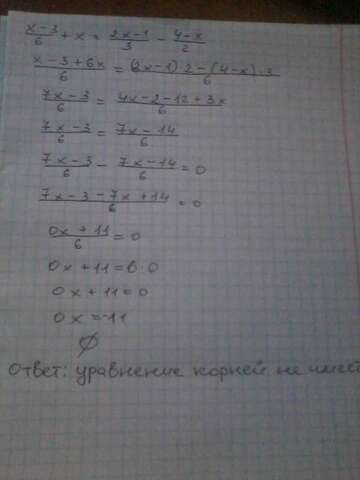 x-3/6 + x = 2x-1/3 - 4-x/2
x-3+6x/6 = (2x-1)·2-(4-x)·3/6
7x-3/6 = 4x-2-12+3x
7x-3/6 = 7x-14/6
7x-3/6 - 7x-14/6 = 0
7x-3-7x+14/6 = 0
0x+11/6 = 0
0x+11=6·0
0x+11=0
0x=-11
∅
Ответ: уравнение корней не имеет